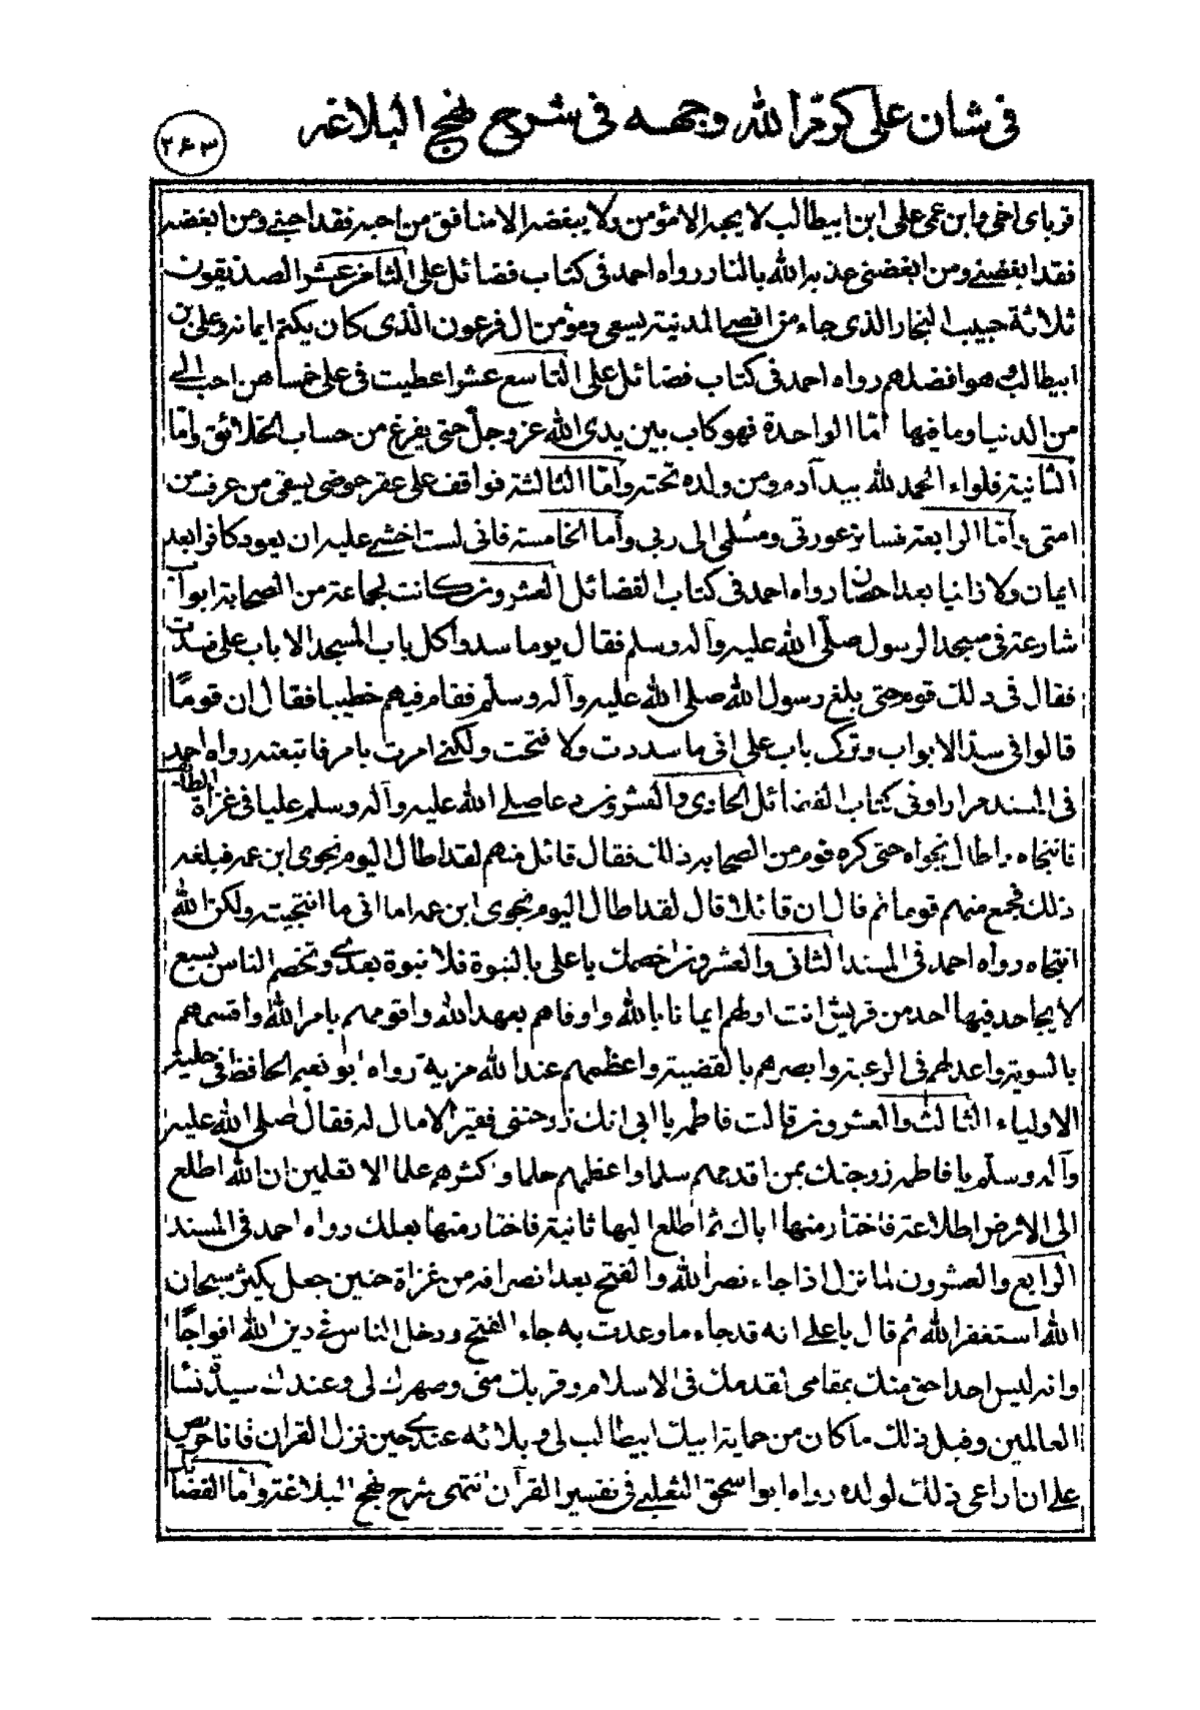 فى شان على كرّم الله وجهه فى شرح نهج البلاغة
٢٤٣
قرباى اخى وابن عمى على ابن ابيطالب لا يحبه الا مؤمن ولا يبغضه الا منافق من احبه فقد احبنى ومن ابغضه
فقد ابغضنى ومن ابغضنى عذبه الله بالنار رواه احمد فى كتاب فضائل على الثامن عشر الصديقون
ثلاثة حبيب النجار الذى جاء من اقصى المدينة يسعى ومؤمن ال فرعون الذى كان يكتم ايمانه وعلى بن
ابيطالب هو افضلهم رواه احمد فى كتاب فضائل على التاسع عشر اعطيت فى على خمسا هن احب الى
من الدنيا وما فيها امّا الواحدة فهو كاب بين يدى الله عز وجل حتى يفرغ من حساب الخلائق وامّا
الثانية فلواء الحمد لله بيد آدم ومن ولده تحته وامّا الثالثة فواقف على عقر حوضى يسقى من عرف من
امتى وامّا الرابعة فساتر عورتى ومسلمى الى ربى وأما الخامسة فانى لست اخشى عليه ان يعود كافرا بعد
ايمان ولا زانيا بعد احصان رواه احمد فى كتاب الفضائل العشرون كانت لجماعة من الصحابة ابواب
شارعة فى مسجد الرسول صلّى الله عليه وآله وسلم فقال يوما سدوا كل باب المسجد الا باب على فسدت
فقال فى ذلك قوم حتى بلغ رسول الله صلى الله عليه وآله وسلّم فقام فيهم خطيبا فقال ان قومًا
قالوا فى سدّ الابواب وترك باب على انى ما سددت ولا فتحت ولكنى امرت بامر فاتبعته رواه احمد
فى المسند مرارا وفى كتاب الفضائل الحادى والعشرون دعا صلى الله عليه وآله وسلم عليا فى غزاة الطائف
فانتجاه واطال نجواه حتى كره قوم من الصحابة ذلك فقال قائل منهم لقد اطال اليوم نجوى ابن عمه فبلغه
ذلك فجمع منهم قوما ثم قال ان قائلا قال لقد اطال اليوم نجوى ابن عمه اما انى ما انتجيته ولكن الله
انتجاه رواه احمد فى المسند الثانى والعشرون اخصمك يا على بالنبوة فلا نبوة بعدى وتخصم الناس بسبع
لا يجاحد فيها احد من قريش انت اولهم ايمانا بالله واوفاهم بعهد الله واقومهم بامر الله واقسمهم
بالسوية واعدلهم فى الرعية وابصرهم بالقضية واعظمهم عند الله مزية رواه ابو نعيم الحافظ فى حلية
الاولياء الثالث والعشرون قالت فاطمة يا ابى انك زوجتنى فقيرا لا مال له فقال صلى الله عليه
وآله وسلّم يا فاطمة زوجتك بمن اقدمهم سلما واعظمهم حلما واكثرهم علما الا تعلمين ان الله اطلع
الى الارض اطلاعة فاختار منها اباك ثم اطلع اليها ثانية فاختار منها بعلك رواه احمد فى المسند
الرابع والعشرون لما نزل اذا جاء نصر الله والفتح بعد انصرافه من غزاة حنين جعل يكثر سبحان
الله استغفر الله ثم قال يا على انه قد جاء ما وعدت به جاء الفتح ودخل الناس فى دين الله افواجًا
وانه ليس احد احق منك بمقامى لقدمك فى الاسلام وقربك منى وصهرك لى وعندك سيدة نساء
العالمين وقبل ذلك ما كان من حماية ابيك ابيطالب لى وبلائه عندى حين نزل القران فانا حريص
على ان اراعى ذلك لولده رواه ابو اسحق الثعلبى فى تفسير القرآن انتهى شرح نهج البلاغة وامّا القضايا